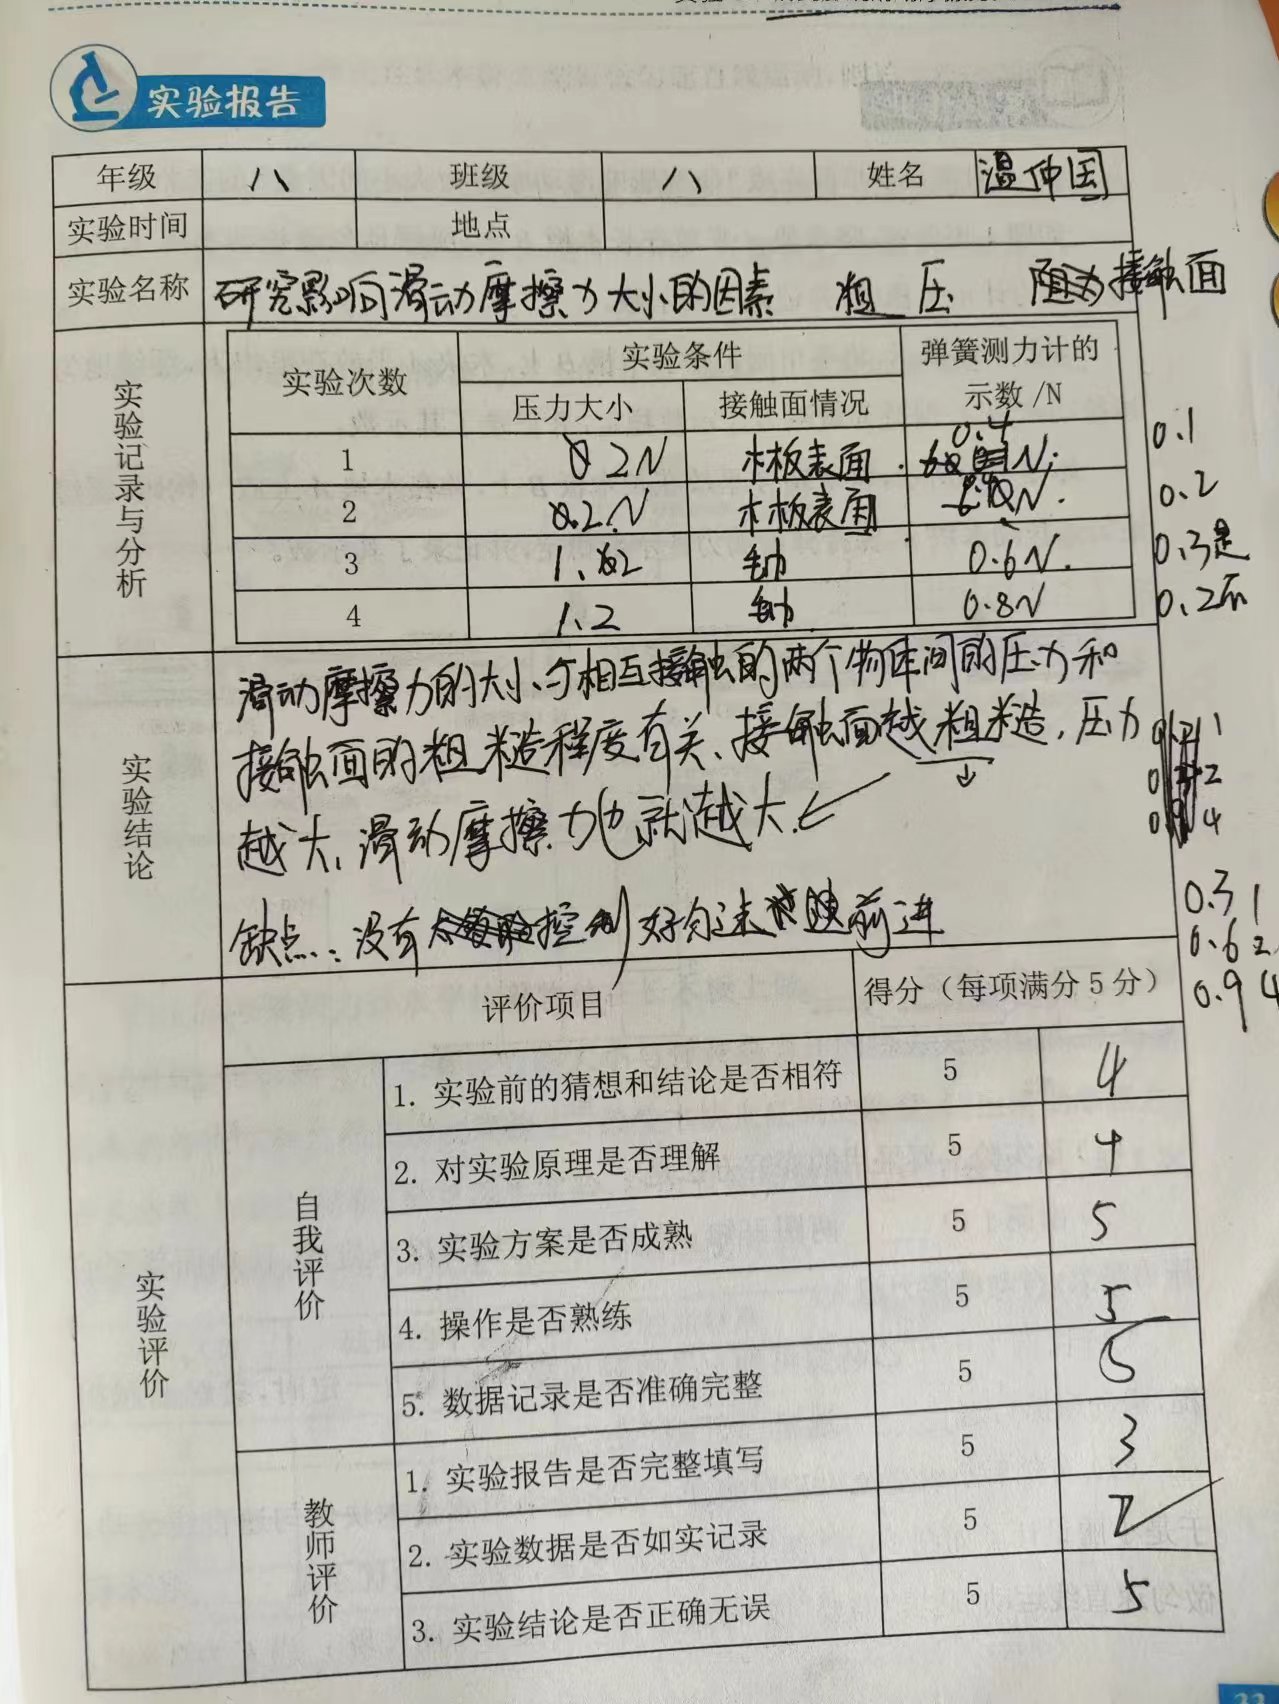 实验报告
年级 八 班级 八 姓名 温仲国
实验时间 地点
实验名称 研究影响滑动摩擦力大小的因素 粗 压 接触面
实验记录与分析
实验次数 实验条件 弹簧测力计的示数/N
压力大小 接触面情况
1 2N 木板表面 0.4 N 0.1
2 0.2N 木板表面 N 0.2
3 1.2 毛巾 0.6N 0.3是
4 1.2 毛巾 0.8N 0.2不
实验结论
滑动摩擦力的大小与相互接触的两个物体间的压力和
接触面的粗糙程度有关、接触面越粗糙,压力
越大、滑动摩擦力也就越大.
缺点:没有控制好匀速前进
0.3 1
0.6 2
0.9 4
实验评价
评价项目 得分(每项满分5分)
自我评价
1. 实验前的猜想和结论是否相符 5 4
2. 对实验原理是否理解 5 4
3. 实验方案是否成熟 5 5
4. 操作是否熟练 5 5
5. 数据记录是否准确完整 5 5
教师评价
1. 实验报告是否完整填写 5 3
2. 实验数据是否如实记录 5 2
3. 实验结论是否正确无误 5 5